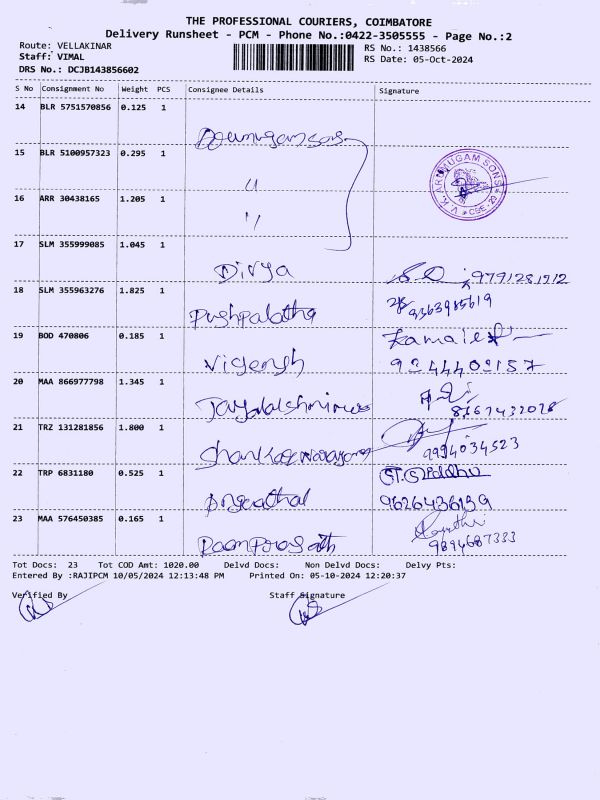 THE PROFESSIONAL COURIERS, COIMBATORE
Delivery Runsheet - PCM - Phone No.:0422-3505555 - Page No.:2
Route: VELLAKINAR
RS No.: 1438566
Staff: VIMAL
RS Date: 05-Oct-2024
DRS No.: DCJB143856602
S No Consignment No Weight PCS Consignee Details Signature
14 BLR 5751570856 0.125 1
15 BLR 5100957323 0.295 1
V.K. ARUMUGAM SONS
CBE-29
16 ARR 30438165 1.205 1
17 SLM 355999085 1.045 1
Divya 9791281912
18 SLM 355963276 1.825 1
Pushpalatha 9363985619
19 BOD 470806 0.185 1
Vigensh Kamalesh
20 MAA 866977798 1.345 1
21 TRZ 131281856 1.800 1
9994034523
22 TRP 6831180 0.525 1
9626436199
23 MAA 576450385 0.165 1
9894687333
Tot Docs: 23 Tot COD Amt: 1020.00 Delvd Docs: Non Delvd Docs: Delvy Pts:
Entered By :RAJIPCM 10/05/2024 12:13:48 PM Printed On: 05-10-2024 12:20:37
Verified By Staff Signature